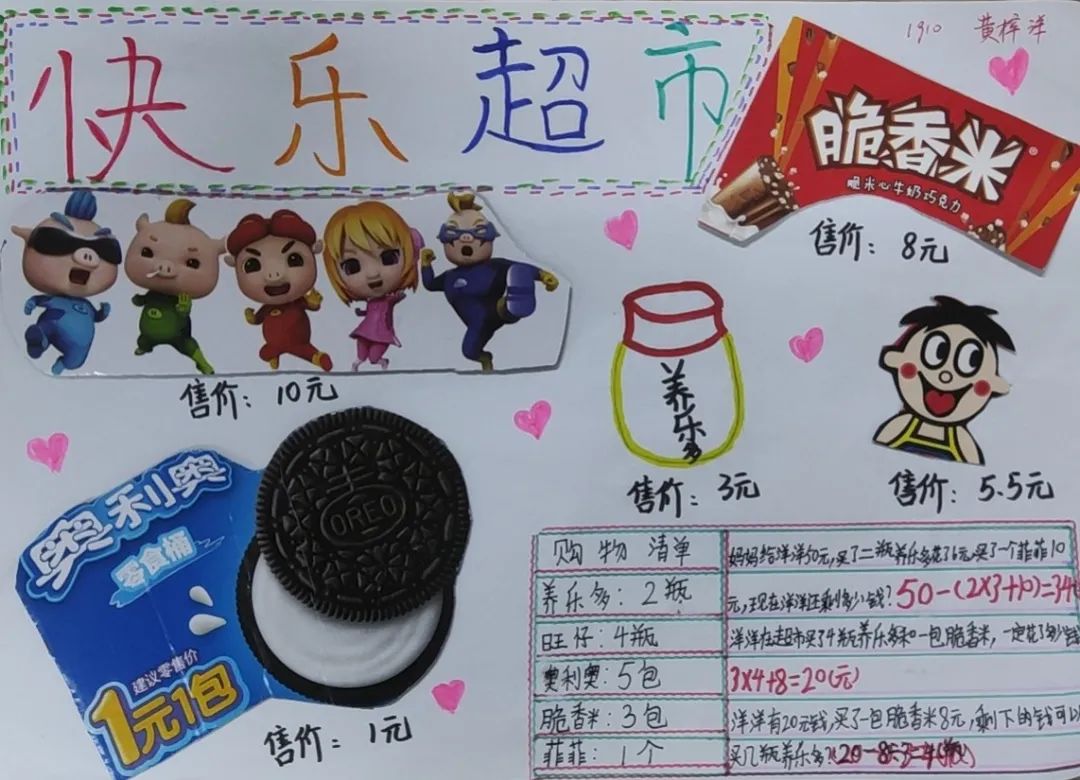 快乐超市
1910 黄梓洋
脆香米
脆米心牛奶巧克力
售价：8元
售价：10元
养乐多
售价：3元
售价：5.5元
奥利奥
零食桶
OREO
建议零售价
1元1包
售价：1元
购物清单
养乐多：2瓶
旺仔：4瓶
奥利奥：5包
脆香米：3包
菲菲：1个
妈妈给洋洋50元，买了二瓶养乐多花了6元，买了一个菲菲10
元，现在洋洋还剩多少钱？50-(2×3+10)=34
洋洋在超市买了4瓶养乐多和一包脆香米，一定花了多少钱
3×4+8=20(元)
洋洋有20元钱，买了一包脆香米8元，剩下的钱可以
买几瓶养乐多？20-8÷3=4(瓶)